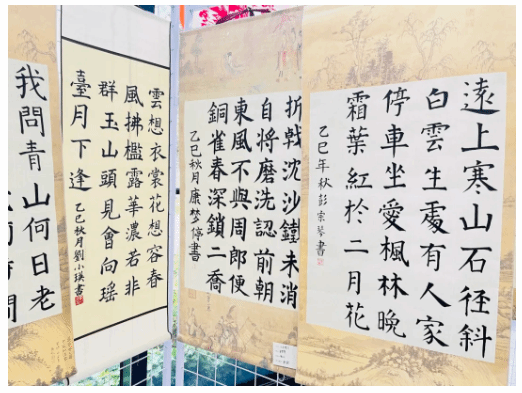 遠上寒山石径斜
白雲生處有人家
停車坐愛楓林晚
霜葉紅於二月花
乙巳年秋彭素琴書
折戟沈沙鐵未消
自將磨洗認前朝
東風不與周郎便
銅雀春深鎖二喬
乙巳秋月康梦停書
雲想衣裳花想容春
風拂檻露華濃若非
群玉山頭見會向瑶
臺月下逢
乙巳秋月劉小瑛書
我問青山何日老